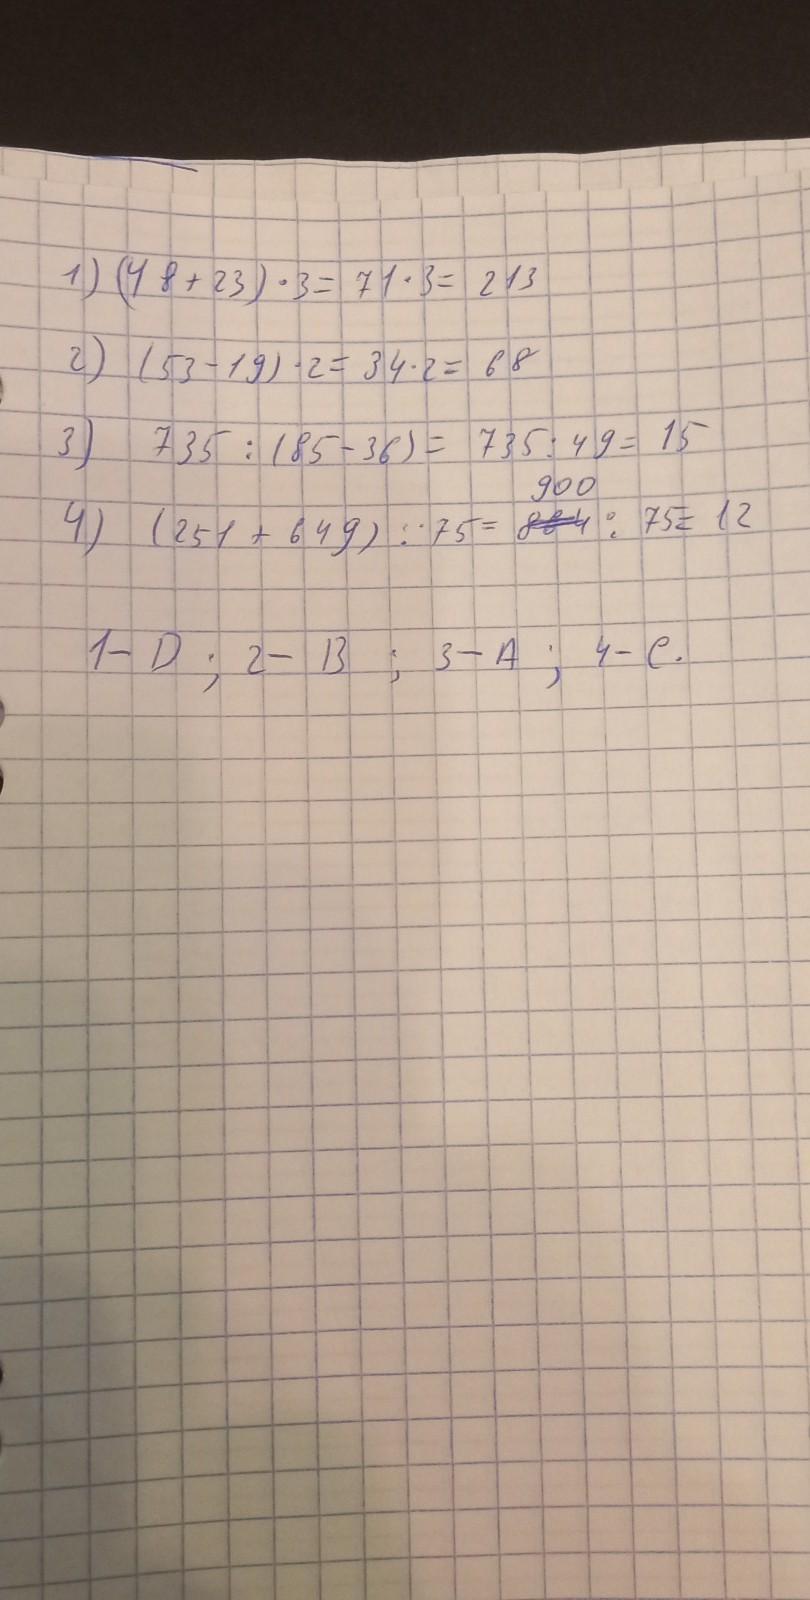 1) (48+23)·3= 71·3= 213
2) (53-19)·2= 34·2= 68
3) 735:(85-36)= 735:49= 15
900
4) (251+649):75= 884:75= 12
1-D; 2-B; 3-A; 4-C.